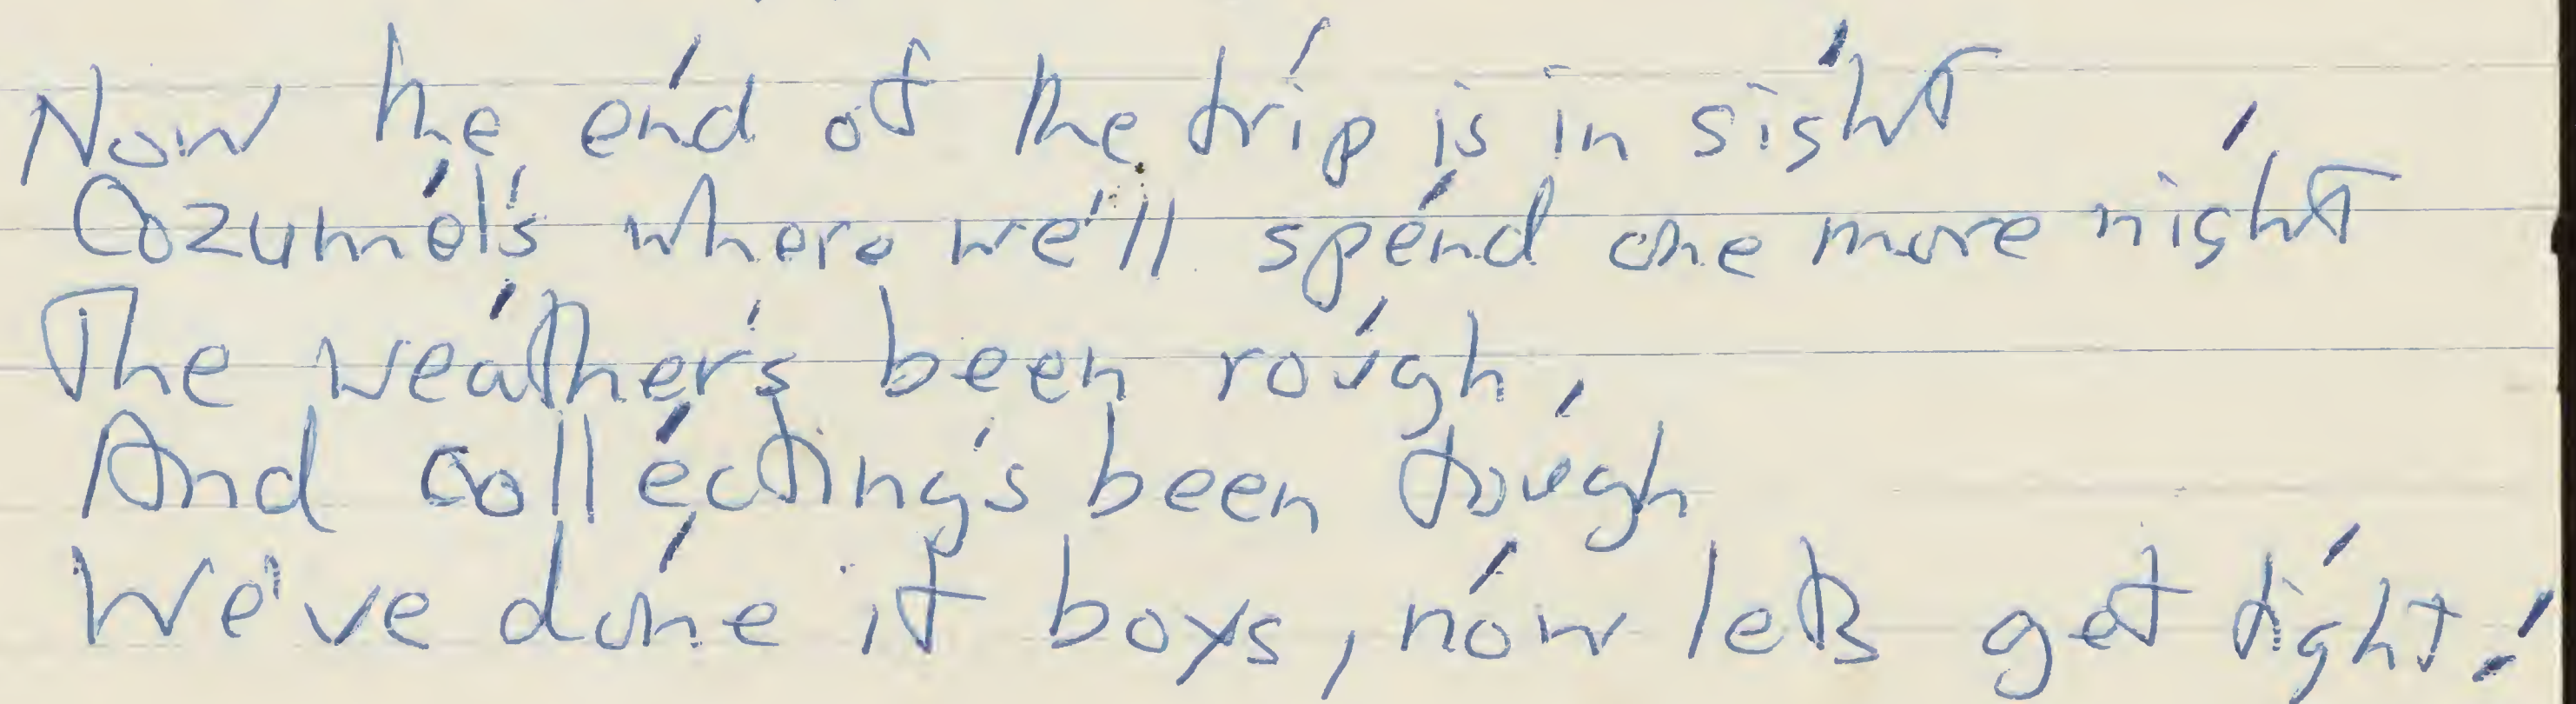 Now the end of the trip is in sight
Cozumel's where we'll spend one more night
The weather's been rough,
And collecting's been tough
We've done it boys, now lets get tight!